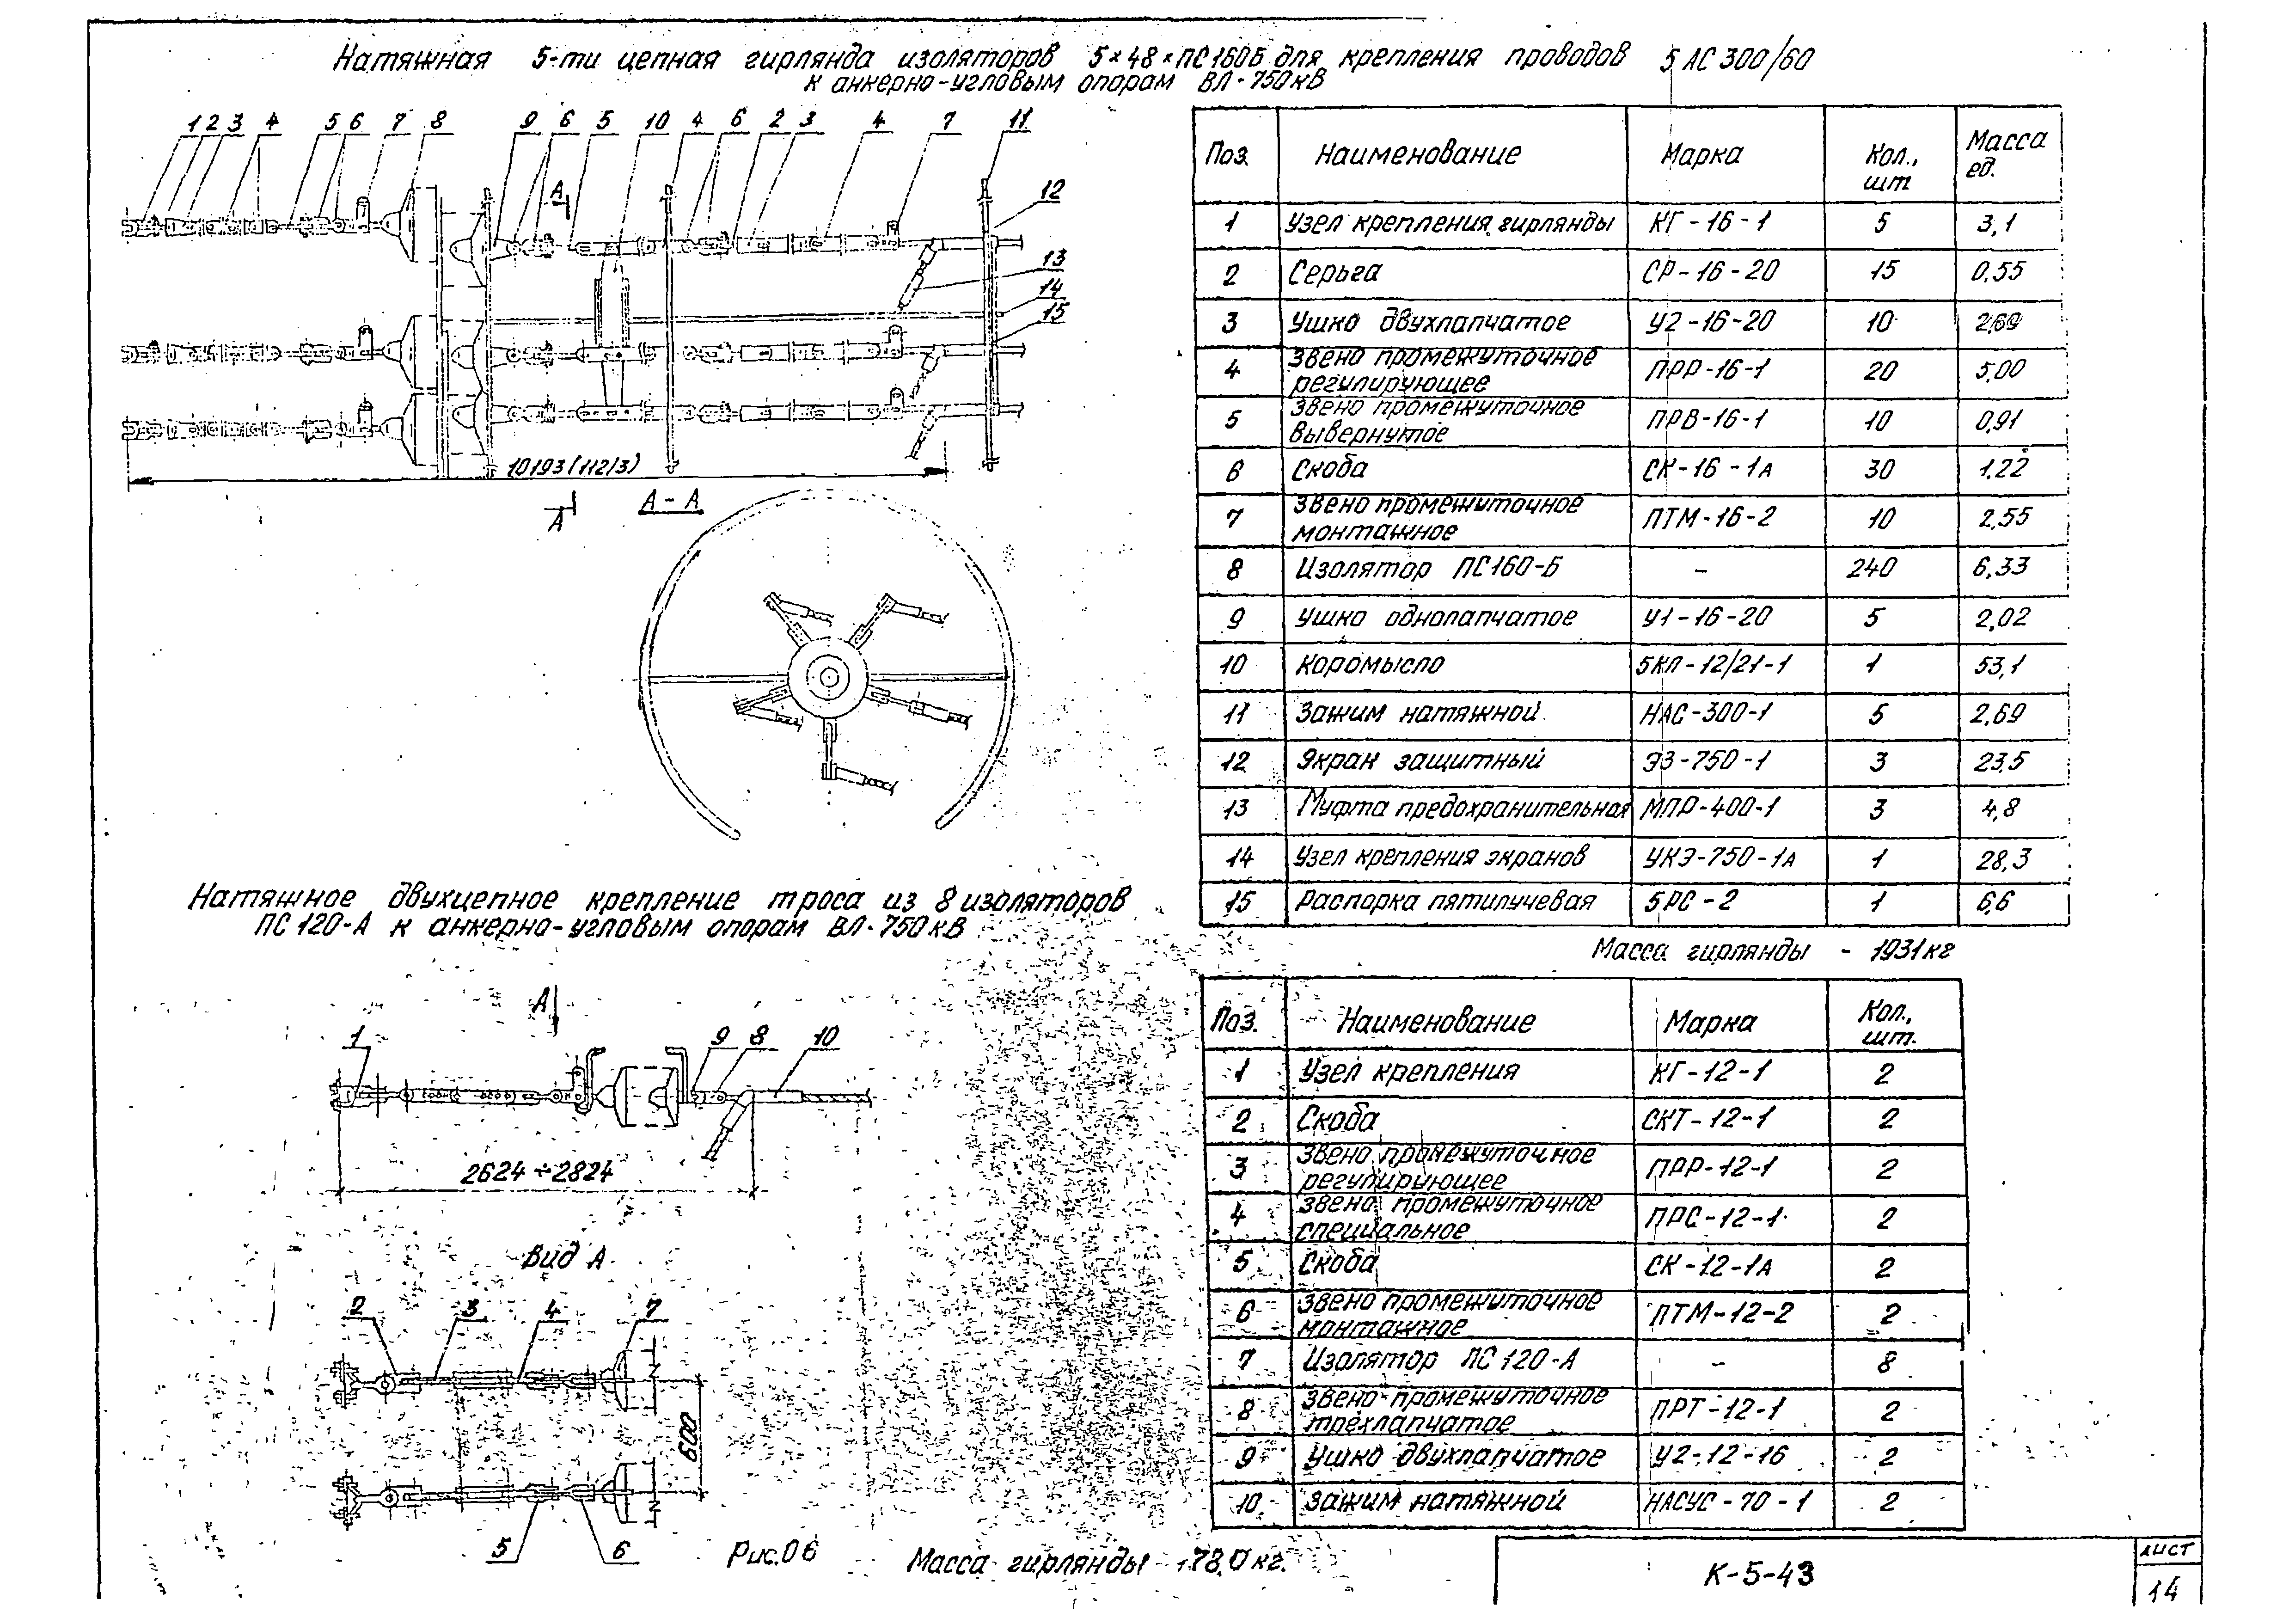 Натяжная 5-ти цепная гирлянда изоляторов 5×48×ПС160Б для крепления проводов 5АС300/60
к анкерно-угловым опорам ВЛ-750кВ
1 2 3 4 5 6 7 8 9 6 5 10 4 6 2 3 4 7 11
А
12
13
14
15
10193(11213)
А
А-А
Поз. Наименование Марка Кол., шт Масса ед.
1 Узел крепления гирлянды КГ-16-1 5 3,1
2 Серьга СР-16-20 15 0,55
3 Ушко двухлапчатое У2-16-20 10 2,69
4 Звено промежуточное регулирующее ПРР-16-1 20 5,00
5 Звено промежуточное вывернутое ПРВ-16-1 10 0,91
6 Скоба СК-16-1А 30 1,22
7 Звено промежуточное монтажное ПТМ-16-2 10 2,55
8 Изолятор ПС160-Б - 240 6,33
9 Ушко однолапчатое У1-16-20 5 2,02
10 Коромысло 5КЛ-12/21-1 1 53,1
11 Зажим натяжной НАС-300-1 5 2,69
12 Экран защитный ЭЗ-750-1 3 23,5
13 Муфта предохранительная МПР-400-1 3 4,8
14 Узел крепления экранов УКЭ-750-1А 1 28,3
15 Распорка пятилучевая 5РС-2 1 6,6
Масса гирлянды - 1931кг
Натяжное двухцепное крепление троса из 8 изоляторов
ПС 120-А к анкерно-угловым опорам ВЛ-750кВ
А
1 9 8 10
2624÷2824
Вид А
2 3 4 7
600
5 6
Рис.06
Масса гирлянды - 178,0 кг.
Поз. Наименование Марка Кол., шт.
1 Узел крепления КГ-12-1 2
2 Скоба СКТ-12-1 2
3 Звено промежуточное регулирующее ПРР-12-1 2
4 Звено промежуточное специальное ПРС-12-1 2
5 Скоба СК-12-1А 2
6 Звено промежуточное монтажное ПТМ-12-2 2
7 Изолятор ПС 120-А - 8
8 Звено промежуточное трехлапчатое ПРТ-12-1 2
9 Ушко двухлапчатое У2-12-16 2
10 Зажим натяжной НАСУС-70-1 2
К-5-43
ЛИСТ
14